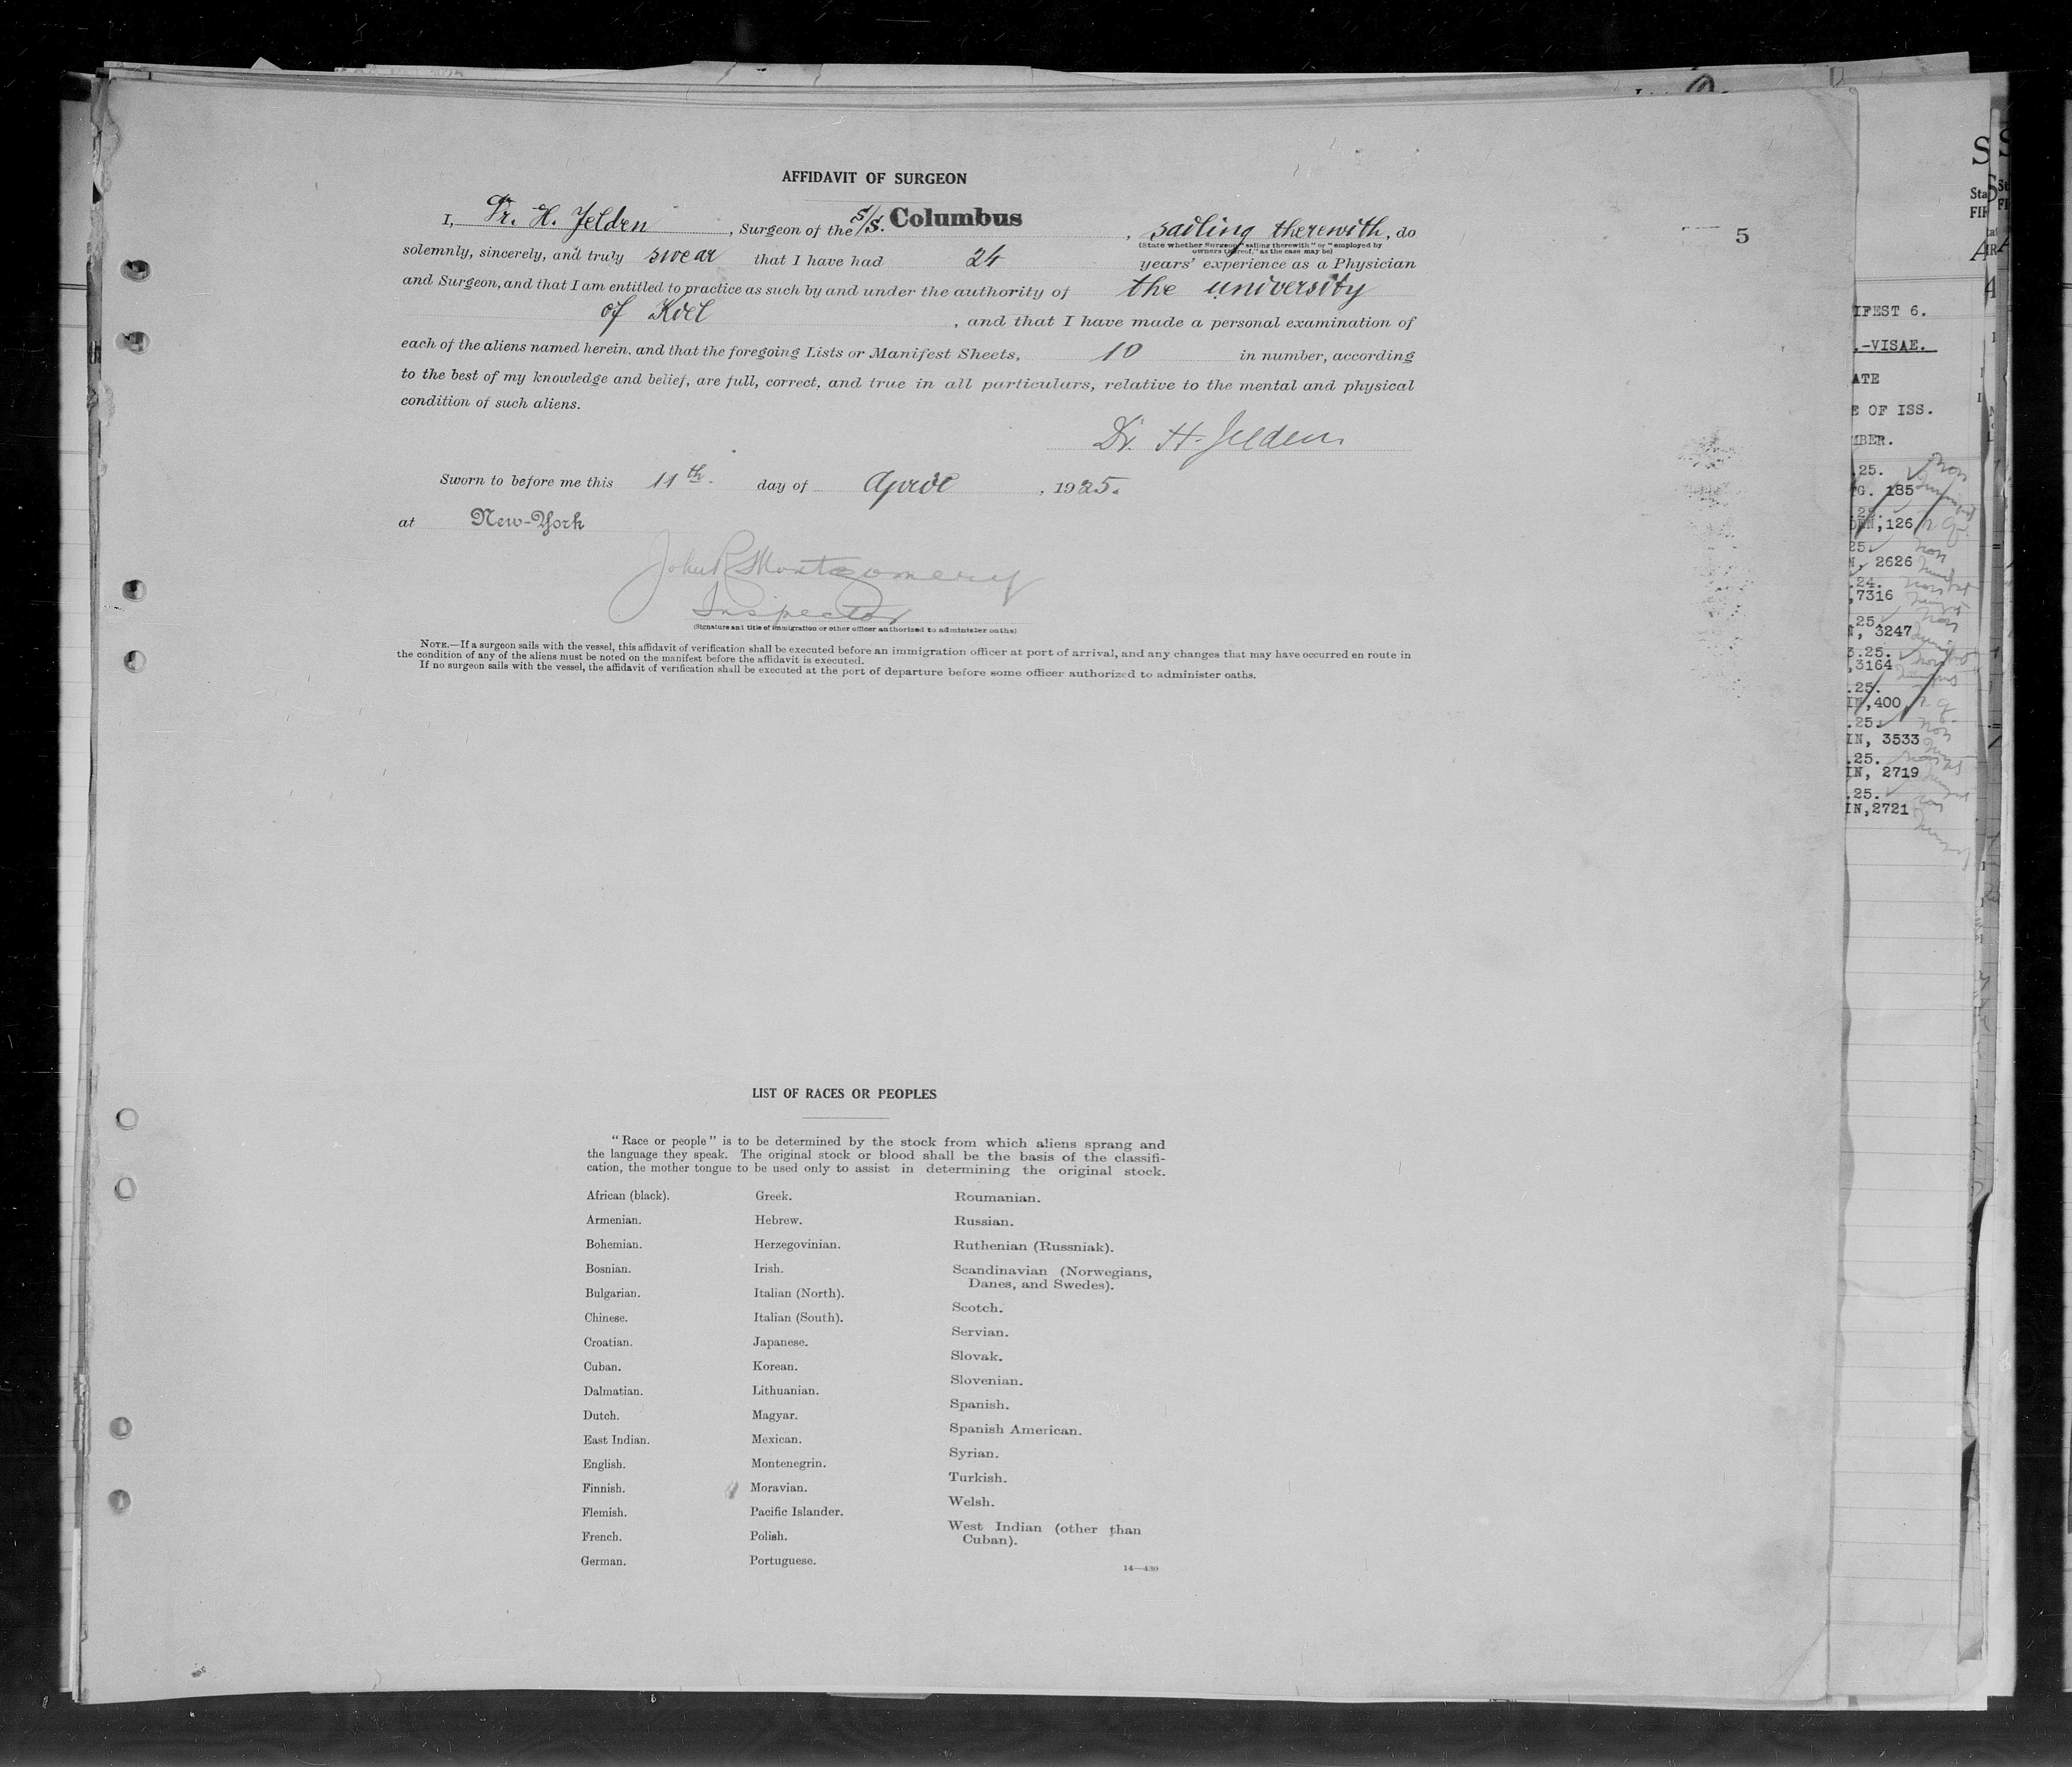 AFFIDAVIT OF SURGEON
5
I, Dr. H. Jelden, Surgeon of the S/S. Columbus, sailing therewith, do
(State whether Surgeon "sailing therewith" or "employed by
owners thereof," as the case may be)
solemnly, sincerely, and truly swear that I have had 24 years' experience as a Physician
and Surgeon, and that I am entitled to practice as such by and under the authority of the university
of Kiel, and that I have made a personal examination of
each of the aliens named herein, and that the foregoing Lists or Manifest Sheets, 10 in number, according
to the best of my knowledge and belief, are full, correct, and true in all particulars, relative to the mental and physical
condition of such aliens.
Dr. H. Jelden
Sworn to before me this 11th. day of April, 1925.
at New-York
John R Montgomery
Inspector
(Signature and title of immigration or other officer authorized to administer oaths)
NOTE.—If a surgeon sails with the vessel, this affidavit of verification shall be executed before an immigration officer at port of arrival, and any changes that may have occurred en route in
the condition of any of the aliens must be noted on the manifest before the affidavit is executed.
If no surgeon sails with the vessel, the affidavit of verification shall be executed at the port of departure before some officer authorized to administer oaths.
LIST OF RACES OR PEOPLES
"Race or people" is to be determined by the stock from which aliens sprang and
the language they speak. The original stock or blood shall be the basis of the classifi-
cation, the mother tongue to be used only to assist in determining the original stock.
African (black).
Armenian.
Bohemian.
Bosnian.
Bulgarian.
Chinese.
Croatian.
Cuban.
Dalmatian.
Dutch.
East Indian.
English.
Finnish.
Flemish.
French.
German.
Greek.
Hebrew.
Herzegovinian.
Irish.
Italian (North).
Italian (South).
Japanese.
Korean.
Lithuanian.
Magyar.
Mexican.
Montenegrin.
Moravian.
Pacific Islander.
Polish.
Portuguese.
Roumanian.
Russian.
Ruthenian (Russniak).
Scandinavian (Norwegians,
Danes, and Swedes).
Scotch.
Servian.
Slovak.
Slovenian.
Spanish.
Spanish American.
Syrian.
Turkish.
Welsh.
West Indian (other than
Cuban).
14—430
IFEST 6.
.-VISAE.
ATE
E OF ISS.
MBER.
.25.
G. 185
.25.
,126
25.
, 2626
.24.
,7316
.25.
, 3247
3.25.
,3164
.25.
,400
.25.
IN, 3533
.25.
IN, 2719
.25.
IN,2721